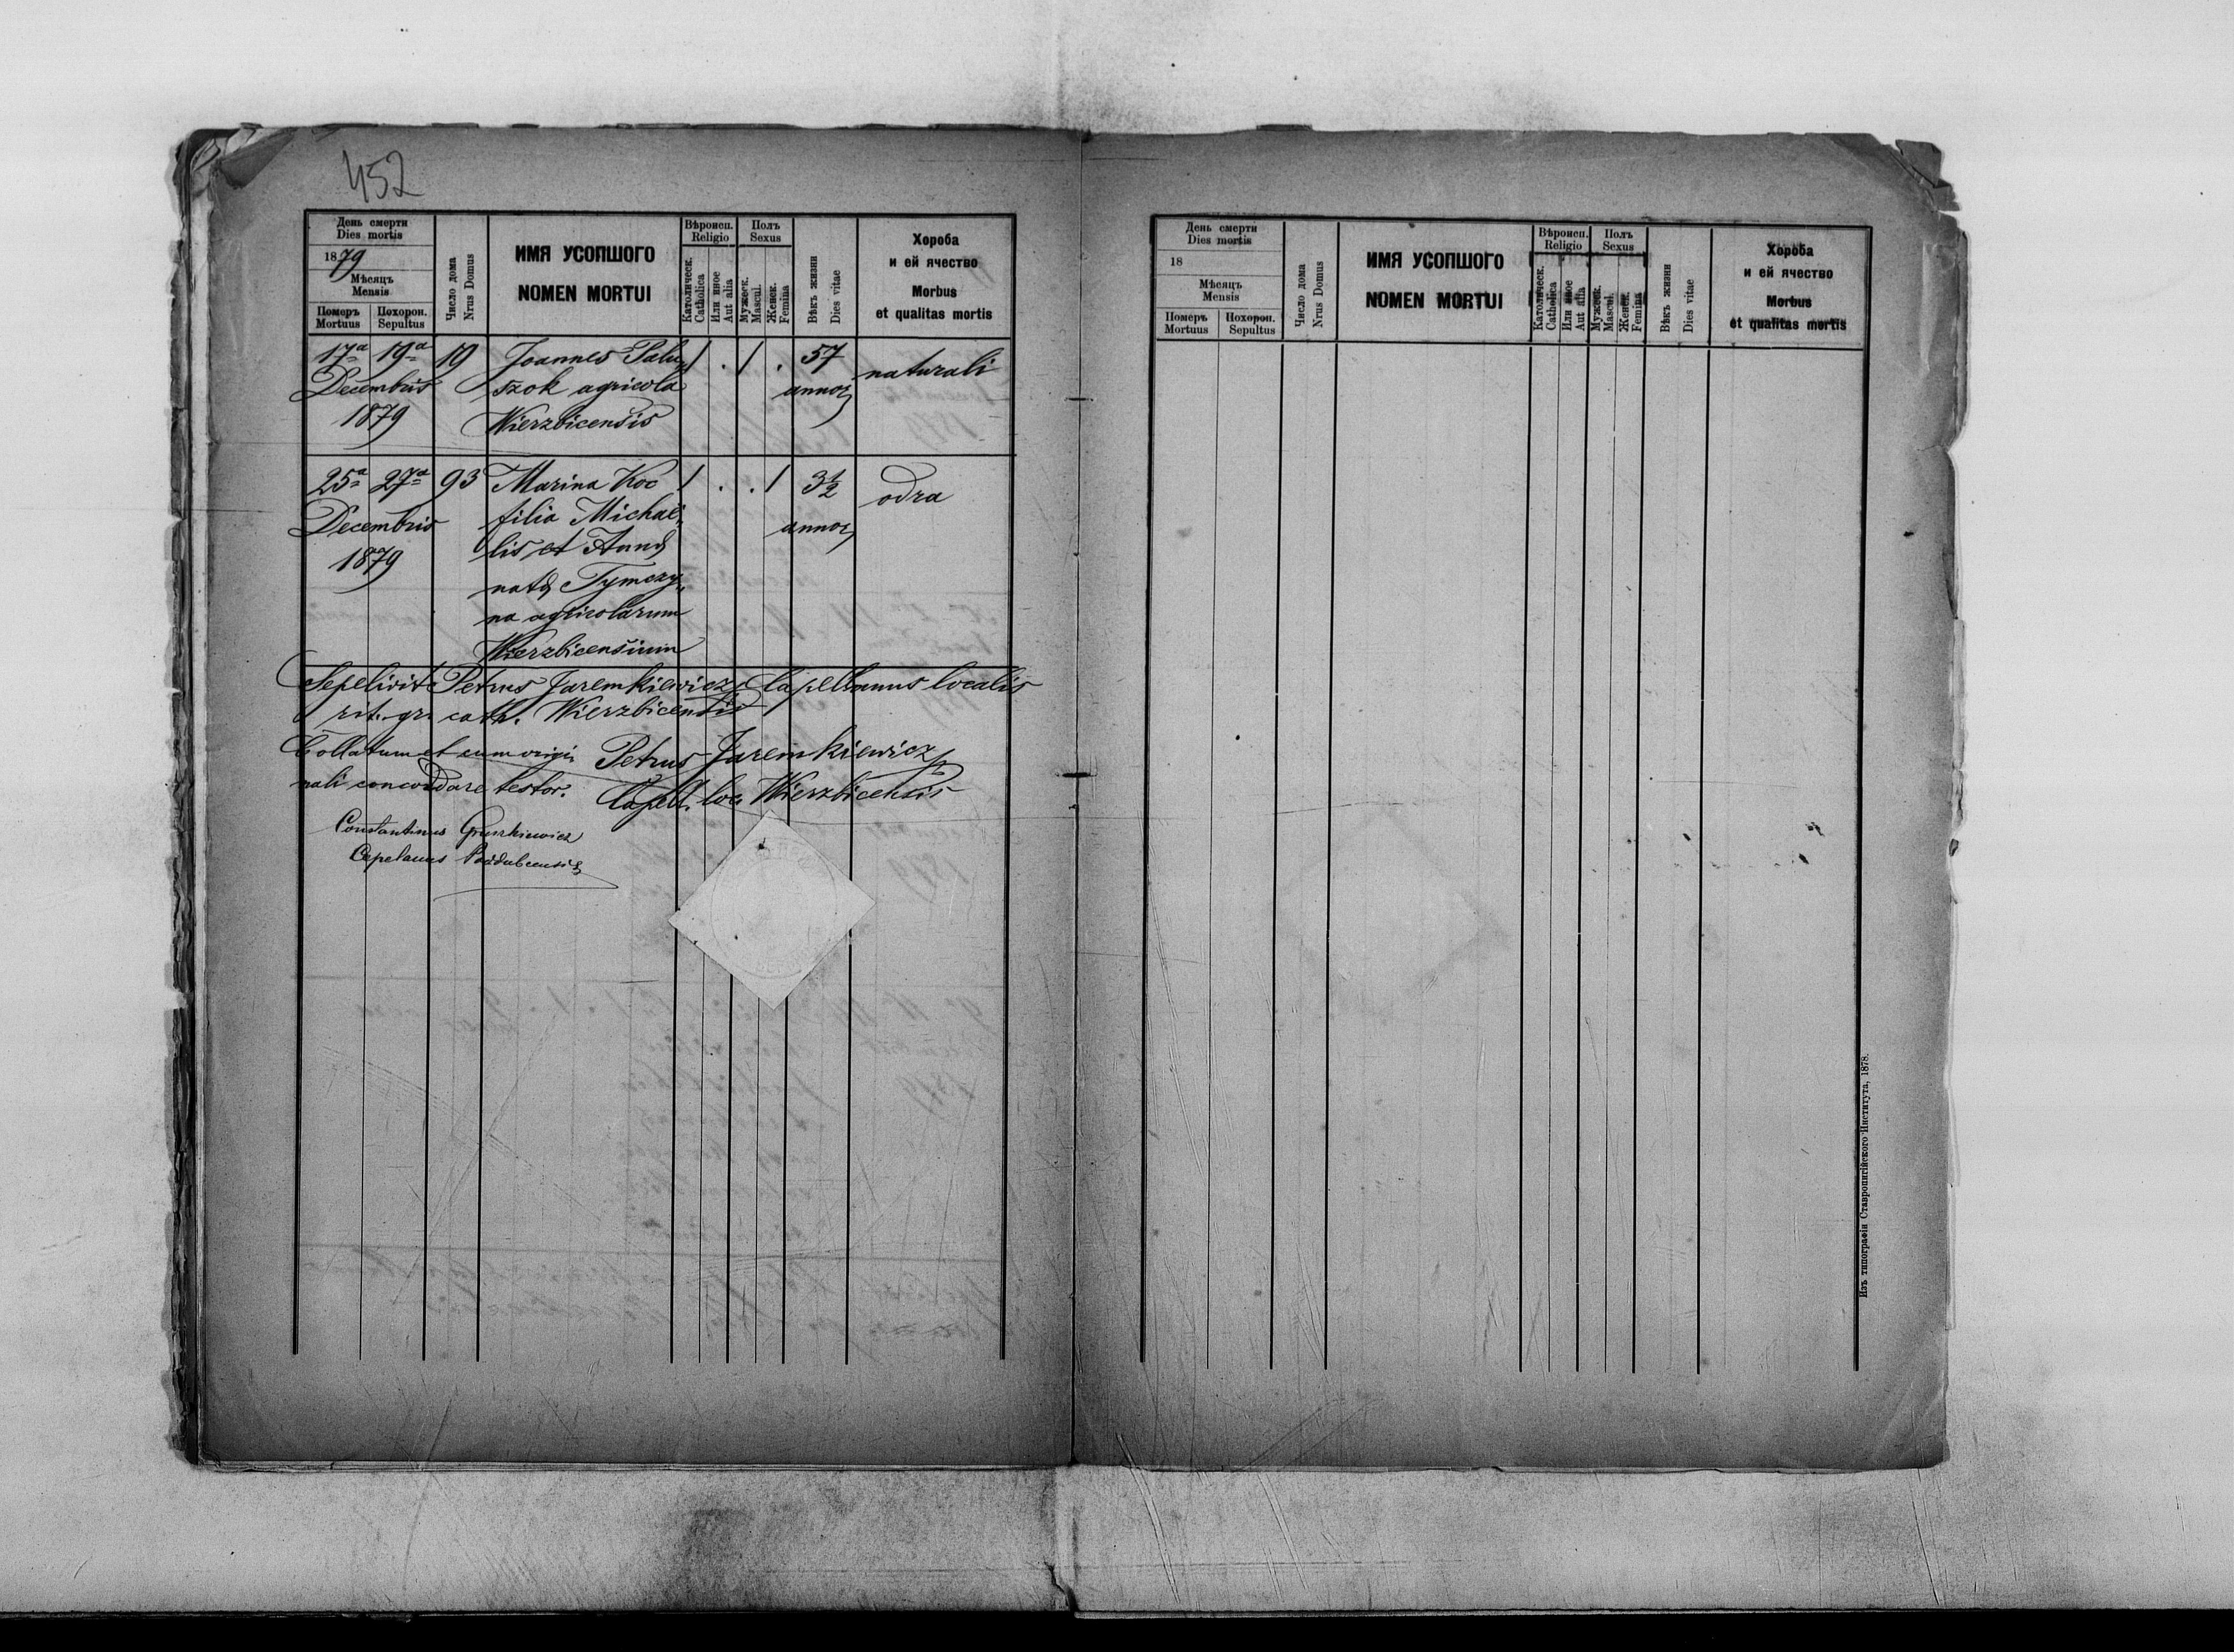 452
День смерти
Dies mortis
1879
Мѣсяцъ
Mensis
Померъ Похорон.
Mortuus Sepultus
Число дома
Nrus Domus
ИМЯ УСОПШОГО
NOMEN MORTUI
Вѣроисп.
Religio
Католическ.
Catholica
Или иное
Aut alia
Полъ
Sexus
Мужеск.
Mascul.
Женск.
Femina
Вѣкъ жизни
Dies vitae
Хороба
и ей ячество
Morbus
et qualitas mortis
17a 19a 19 Joannes Palu„ 1 . 1 . 57 naturali
Decembris szok agricola annor
1879 Wierzbicensis
25a 27a 93 Marina Koc 1 . . 1 3½ odra
Decembris filia Michae„ annor
1879 lis et Annę
natę Tymczy„
na agricolarum
Wierzbicensium
Sepelivit Petrus Jaremkiewicz Capellanus localis
rit. gr. cath. Wierzbicensis
Collatum et cum origi„ Petrus Jaremkiewicz
nali concordare testor. Capell. loc. Wierzbicensis
Constantinus
Capelanus
День смерти
Dies mortis
18
Мѣсяцъ
Mensis
Померъ Похорон.
Mortuus Sepultus
Число дома
Nrus Domus
ИМЯ УСОПШОГО
NOMEN MORTUI
Вѣроисп.
Religio
Католическ.
Catholica
Или иное
Aut alia
Полъ
Sexus
Мужеск.
Mascul.
Женск.
Femina
Вѣкъ жизни
Dies vitae
Хороба
и ей ячество
Morbus
et qualitas mortis
Изъ типографіи Ставропигійского Института, 1878.